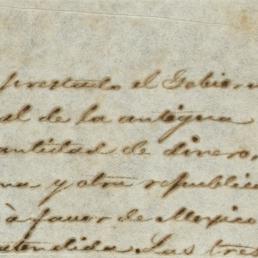 prestado el Gobier
al de la antigua
antidad de dinero,
na y otra republica
à favor de Mexico
atendida. Las tres